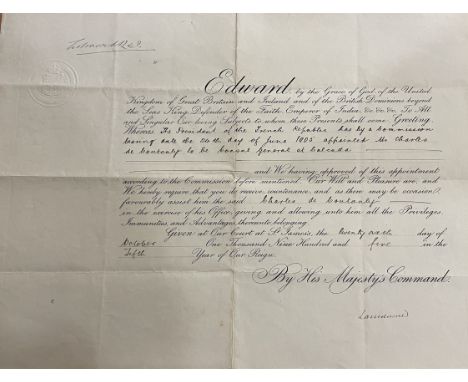 Edward R & I
Edward, by the Grace of God, of the United
Kingdom of Great Britain and Ireland and of the British Dominions beyond
the Seas King, Defender of the Faith, Emperor of India, &c. &c. &c. To All
and Singular Our loving Subjects to whom these Presents shall come Greeting.
Whereas The President of the French Republic has by a Commission
bearing date the day of June 1905 appointed Mr Charles
de to be Consul General at Calcutta
and We having approved of this appointment
according to the Commission before mentioned, Our Will and Pleasure are, and
We hereby require, that you do receive, countenance, and, as there may be occasion,
favourably assist him the said Charles de
in the exercise of his Office, giving and allowing unto him all the Privileges,
Immunities, and Advantages, thereunto belonging.
Given at Our Court at St. James's, the twenty sixth day of
October One Thousand Nine Hundred and five in the
Fifth Year of Our Reign.
By His Majesty's Command.
Lansdowne